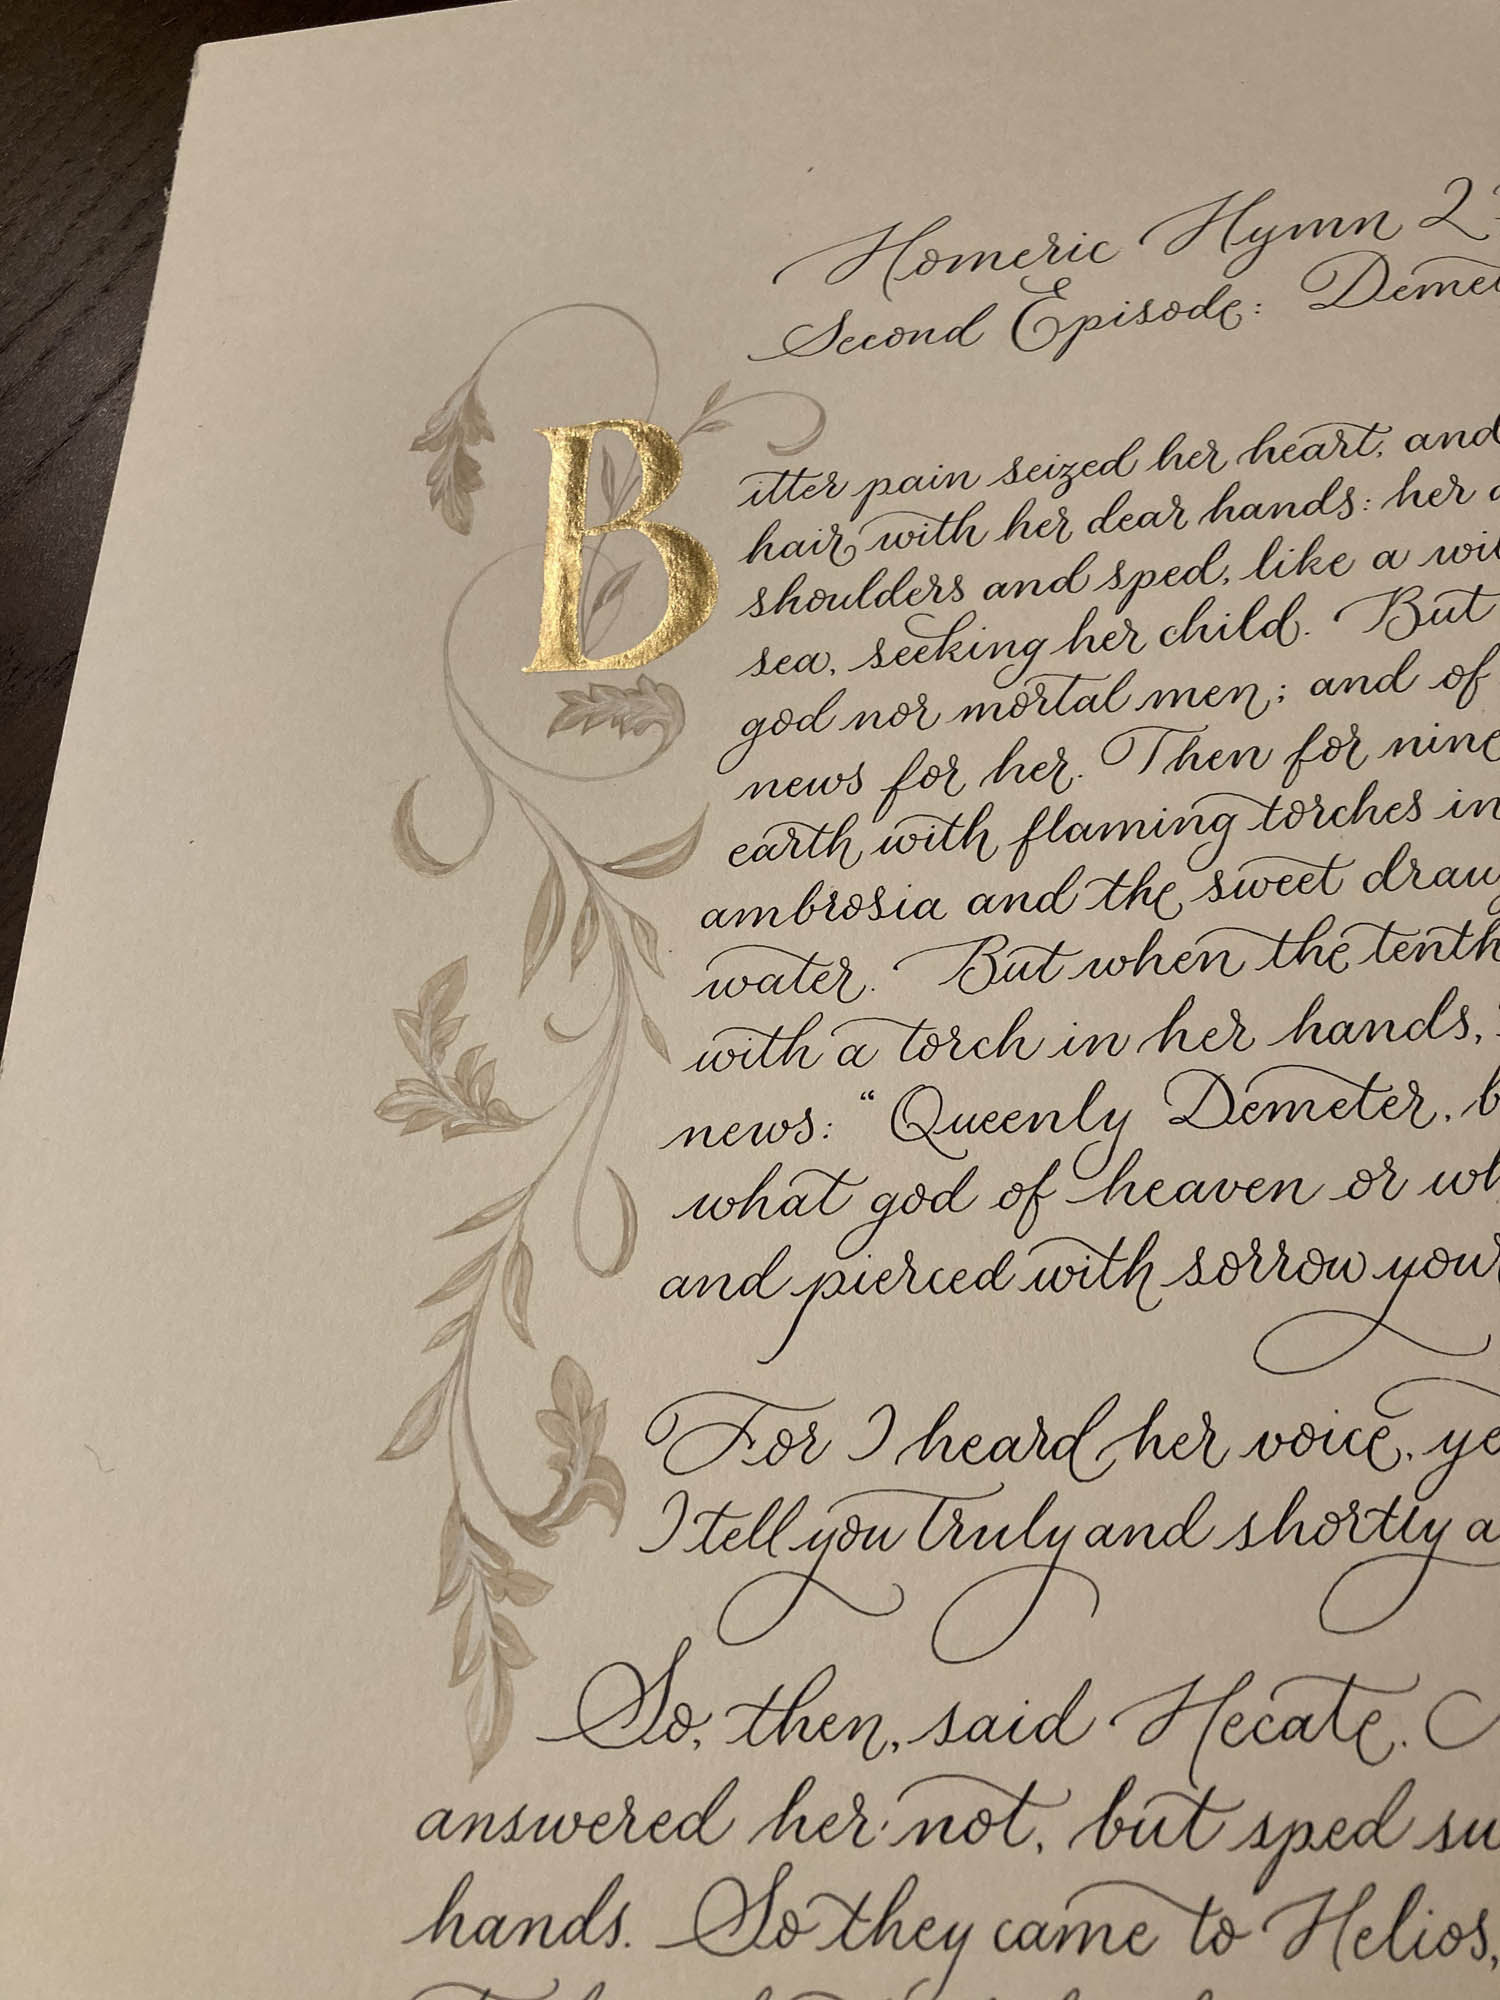 Homeric Hymn 2
Second Episode:
Bitter pain seized her heart, and
hair with her dear hands: her
shoulders and sped, like a
sea, seeking her child. But
god nor mortal men; and of
news for her. Then for nine
earth with flaming torches in
ambrosia and the sweet
water. But when the tenth
with a torch in her hands,
news: "Queenly Demeter,
what god of heaven or
and pierced with sorrow your
For I heard her voice,
I tell you truly and shortly
So, then, said Hecate.
answered her not, but sped
hands. So they came to Helios,